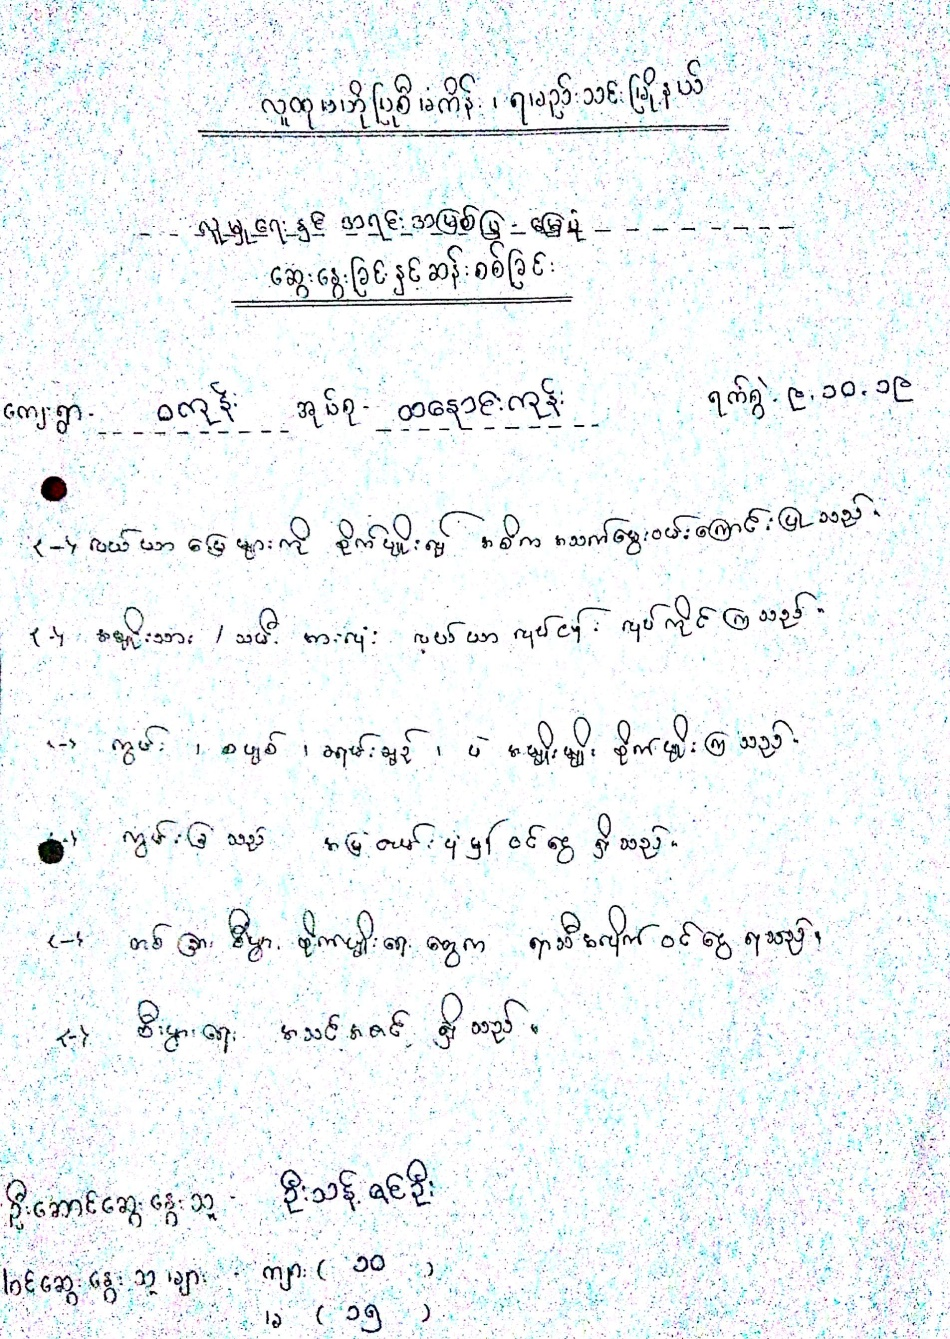 လူထုဗဟိုပြုစီမံကိန်း၊ ရမည်းသင်းမြို့နယ်
လူမှုရေးနှင့် အရင်းအမြစ်ပြ မြေပုံ
ဆွေးနွေးခြင်းနှင့်ဆန်းစစ်ခြင်း
ကျေးရွာ - ဝကုန်း အုပ်စု - ထနောင်းကုန်း ရက်စွဲ - ၉.၁၀.၁၉
(-) လယ်ယာမြေများကို စိုက်ပျိုးလျှင် အဓိက အသက်မွေးဝမ်းကြောင်းပြုသည်။
(-) အမျိုးသား / သမီး အားလုံး လယ်ယာလုပ်ငန်း လုပ်ကိုင်ကြသည်။
(-) ကွမ်း ၊ စပျစ် ၊ ခရမ်းချဉ် ၊ ပဲ အမျိုးမျိုး စိုက်ပျိုးကြသည်။
(-) ကွမ်းခြံသည် အမြဲတမ်း ပုံမှန် ဝင်ငွေ ရှိသည်။
(-) တစ်ခြား သီးနှံ စိုက်ပျိုးရေးတွေက ရာသီအလိုက် ဝင်ငွေ ရသည်။
(-) စီးပွားရေး အသင့်အတင့် ရှိသည်။
ဦးဆောင်ဆွေးနွေးသူ - ဦးသန့်ဇင်ဦး
ပါဝင်ဆွေးနွေးသူများ - ကျား ( ၁၀ )
မ ( ၁၅ )